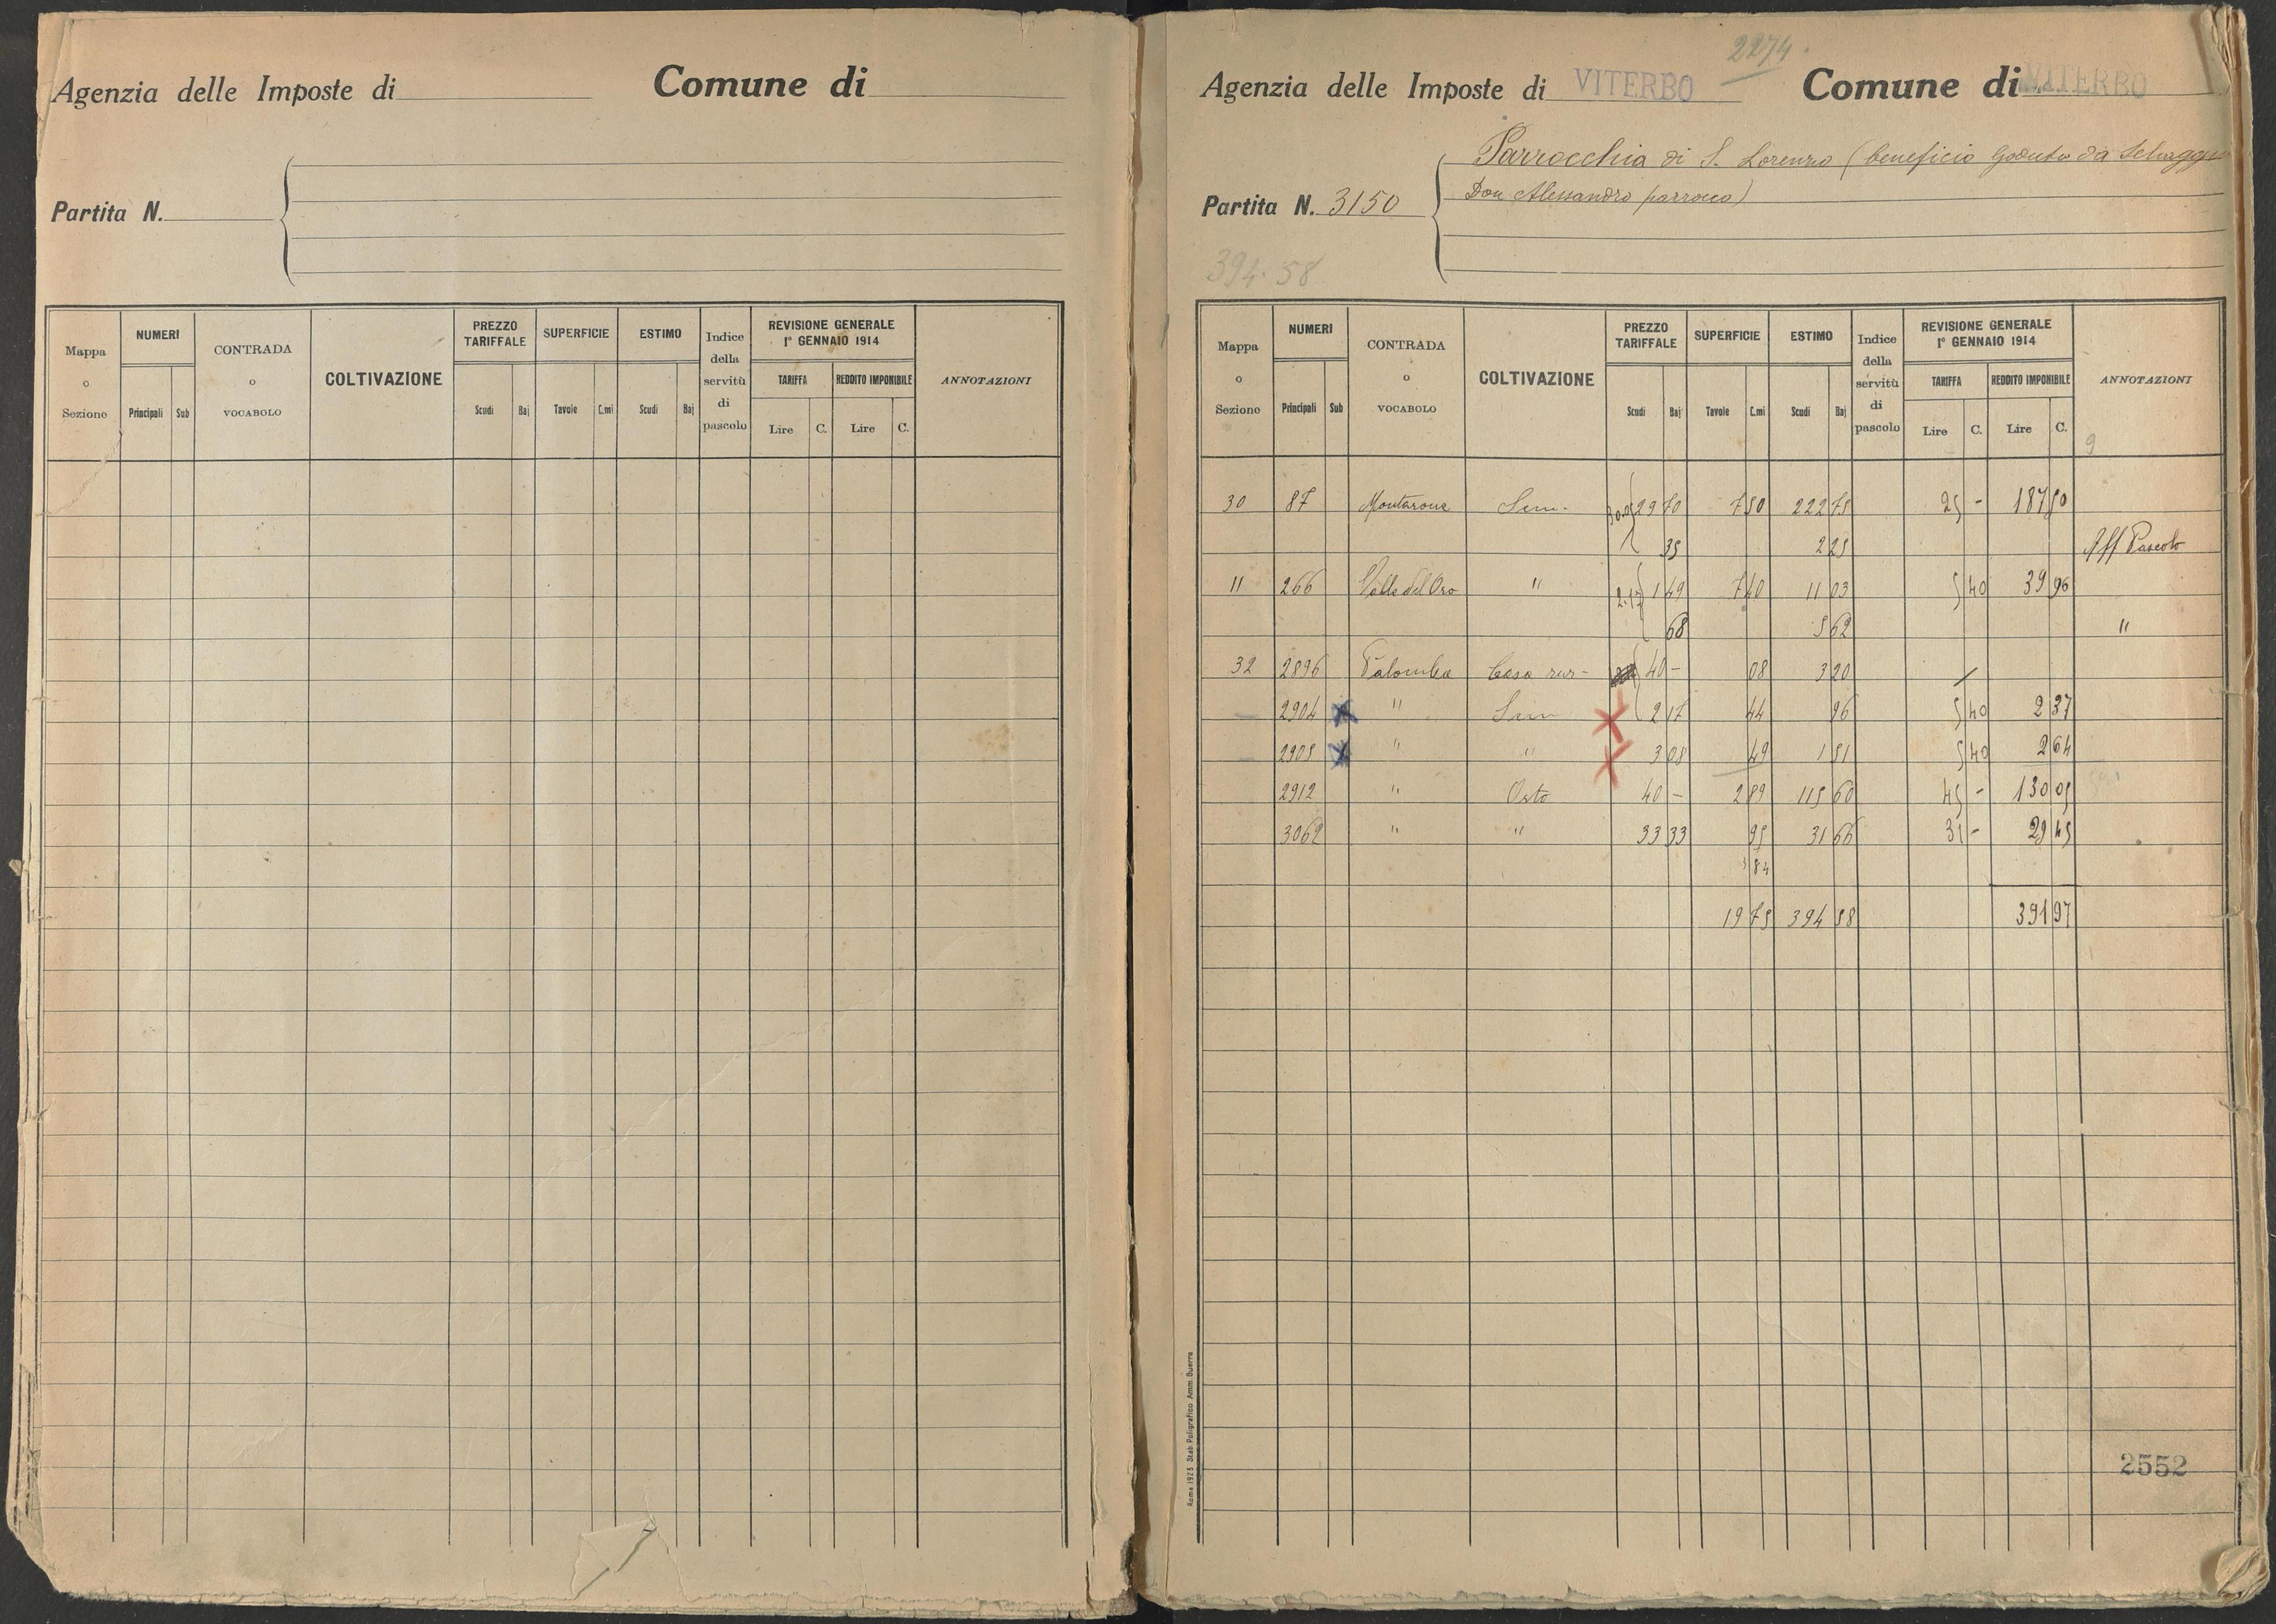 Agenzia delle Imposte di Comune di
Partita N.
Mappa o Sezione NUMERI Principali Sub CONTRADA o VOCABOLO COLTIVAZIONE PREZZO TARIFFALE Scudi Baj SUPERFICIE Tavole C.mi ESTIMO Scudi Baj Indice della servitù di pascolo REVISIONE GENERALE 1° GENNAIO 1914 TARIFFA Lire C. REDDITO IMPONIBILE Lire C. ANNOTAZIONI
2274
Agenzia delle Imposte di VITERBO Comune di VITERBO
Parrocchia di S. Lorenzo (beneficio goduto da
Don Alessandro parroco)
Partita N. 3150
394.58
Mappa o Sezione NUMERI Principali Sub CONTRADA o VOCABOLO COLTIVAZIONE PREZZO TARIFFALE Scudi Baj SUPERFICIE Tavole C.mi ESTIMO Scudi Baj Indice della servitù di pascolo REVISIONE GENERALE 1° GENNAIO 1914 TARIFFA Lire C. REDDITO IMPONIBILE Lire C. ANNOTAZIONI
9
30 87 Montarone Sem. 30.05 29 70 7 50 222 75 25 - 187 50
35 2 25 Aff Pascolo
11 266 Valle del Oro " 2.17 1 49 7 40 11 03 5 40 39 96
68 5 62 "
32 2896 Palomba Casa rur- 40 - 08 3 20 /
2904 " Sem 2 17 44 96 5 40 2 37
2905 " " 3 08 49 1 51 5 40 2 64
2912 " Orto 40 - 2 89 115 60 45 - 130 05
3062 " " 33 33 95 31 66 31 - 29 45
84
19 75 394 58 391 97
Roma 1925 Stab Poligrafico Amm. Guerra
2552